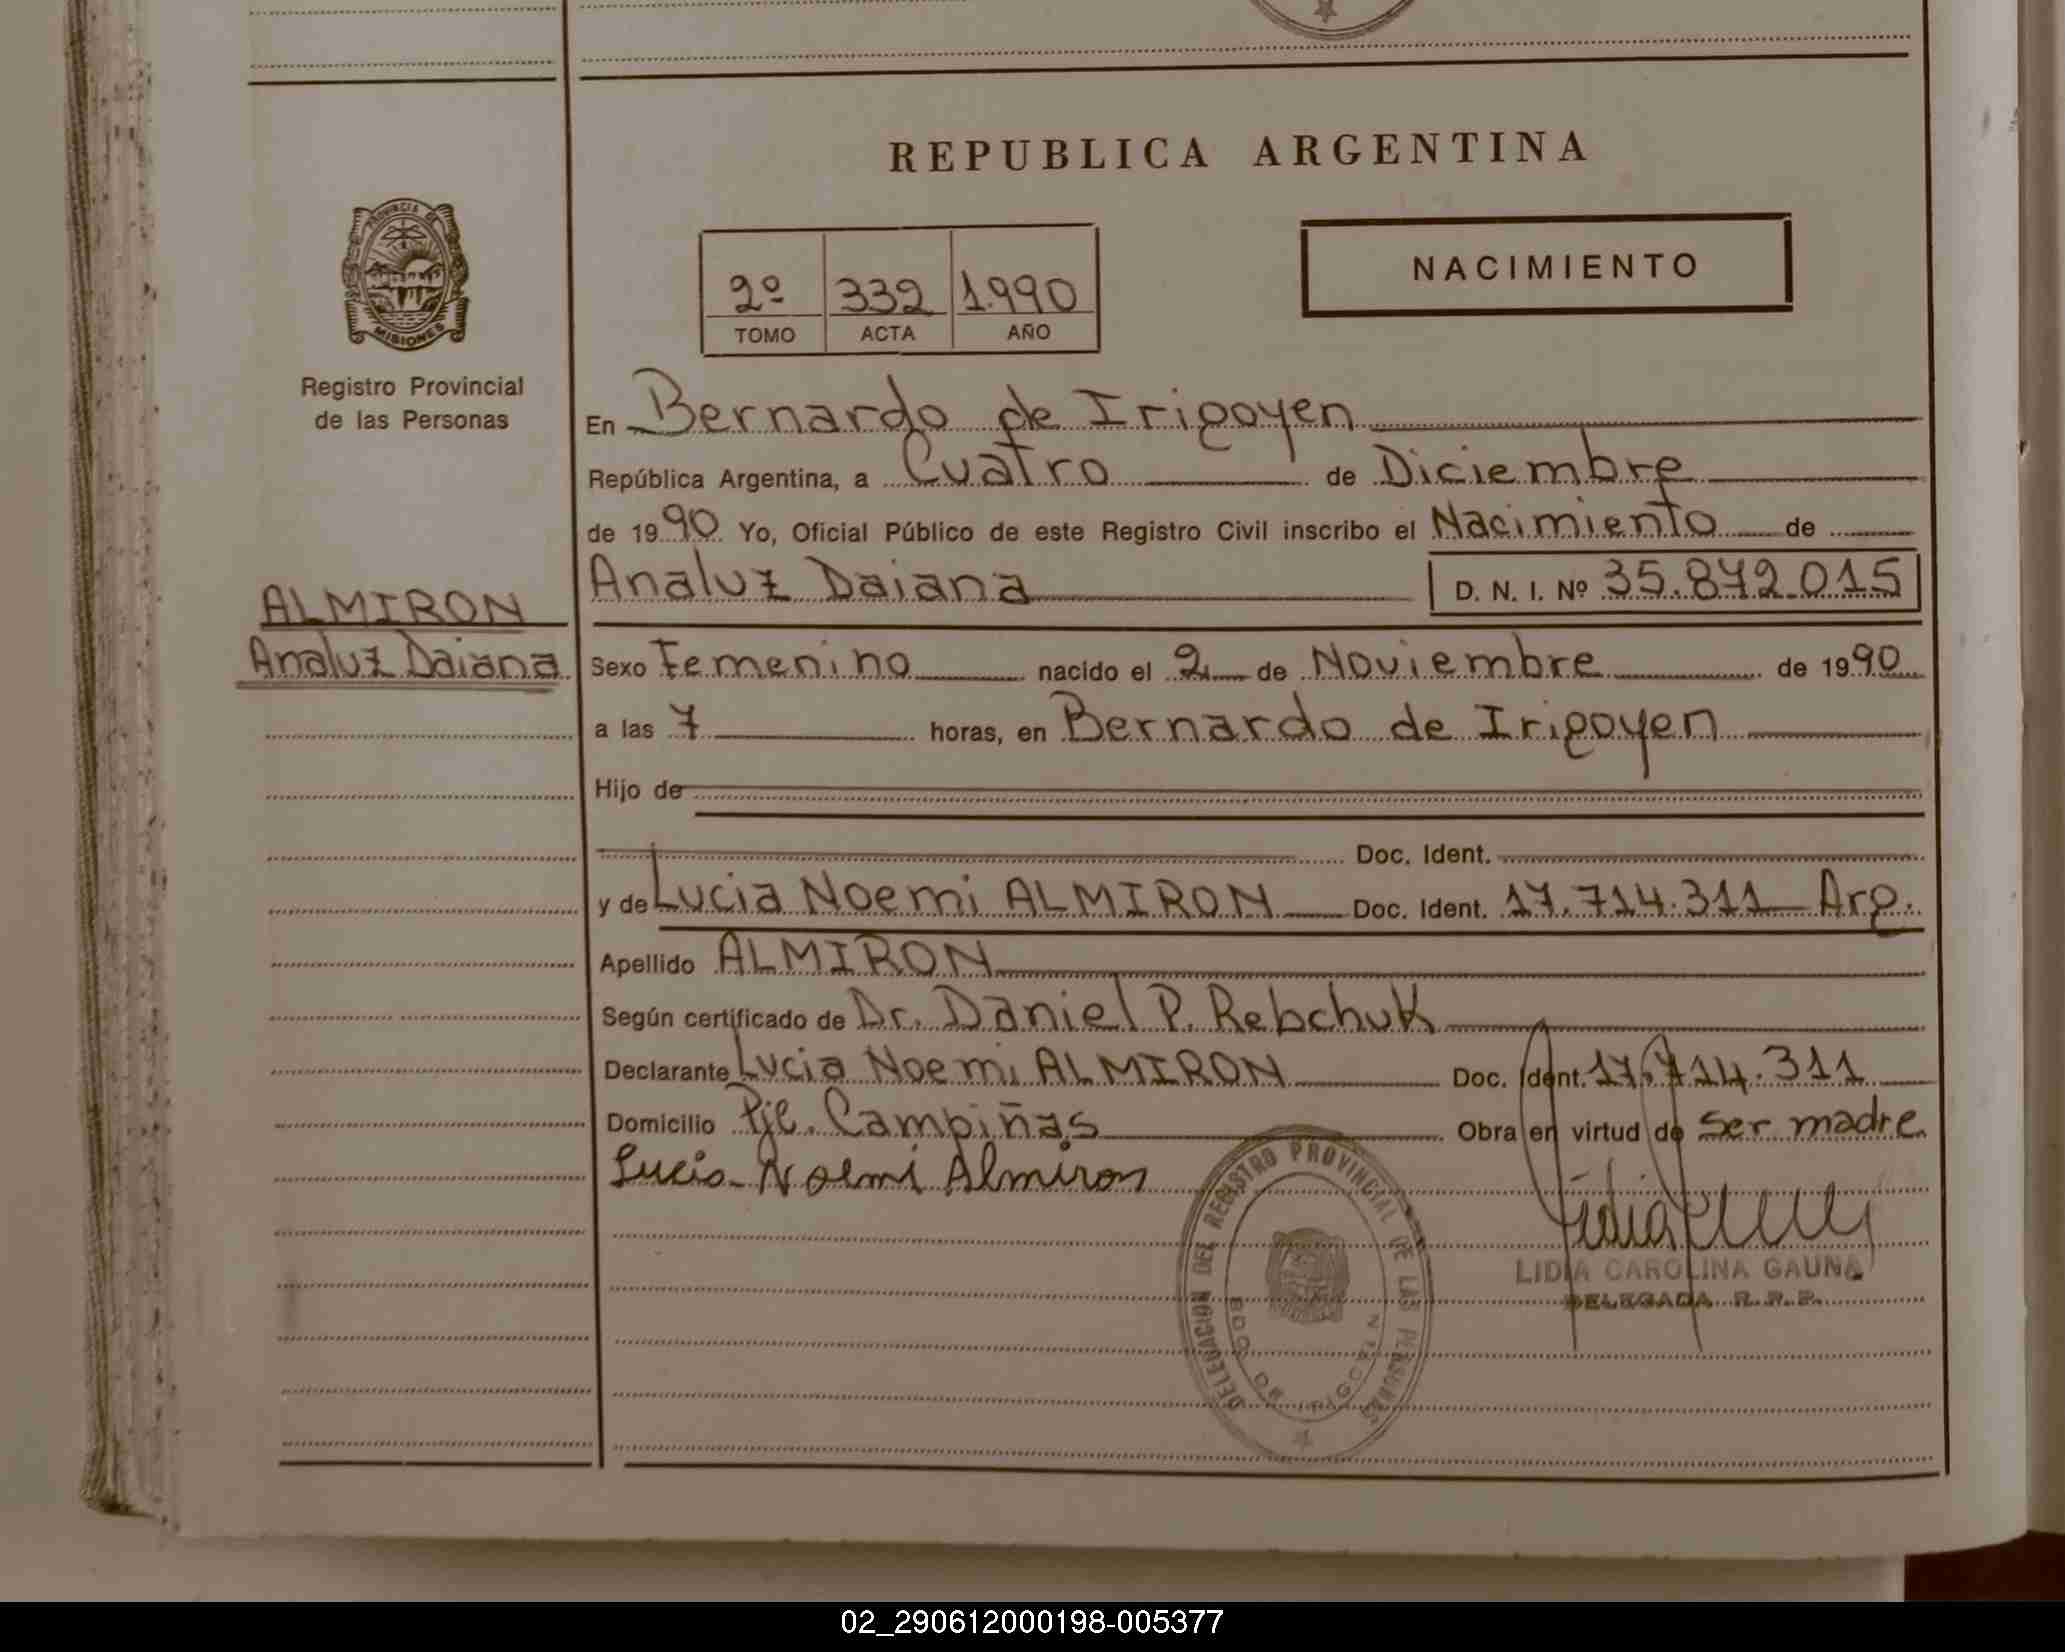 REPUBLICA ARGENTINA
NACIMIENTO
2º 332 1.990
TOMO ACTA AÑO
PROVINCIA DE
MISIONES
Registro Provincial
de las Personas
En Bernardo de Irigoyen
República Argentina, a Cuatro de Diciembre
de 1990 Yo, Oficial Público de este Registro Civil inscribo el Nacimiento de
Analuz Daiana D. N. I. Nº 35.872.015
ALMIRON
Analuz Daiana
Sexo Femenino nacido el 2 de Noviembre de 1990
a las 7 horas, en Bernardo de Irigoyen
Hijo de
Doc. Ident.
y de Lucia Noemi ALMIRON Doc. Ident. 17.714.311 Arg.
Apellido ALMIRON
Según certificado de Dr. Daniel P. Rebchuk
Declarante Lucia Noemi ALMIRON Doc. Ident. 17.714.311
Domicilio Pje. Campiñas Obra en virtud de ser madre
Lucia Noemi Almiron
DELEGACION DEL REGISTRO PROVINCIAL DE LAS PERSONAS
BDO. DE IRIGOYEN
LIDIA CAROLINA GAUNA
DELEGADA R. P. P.
02_290612000198-005377